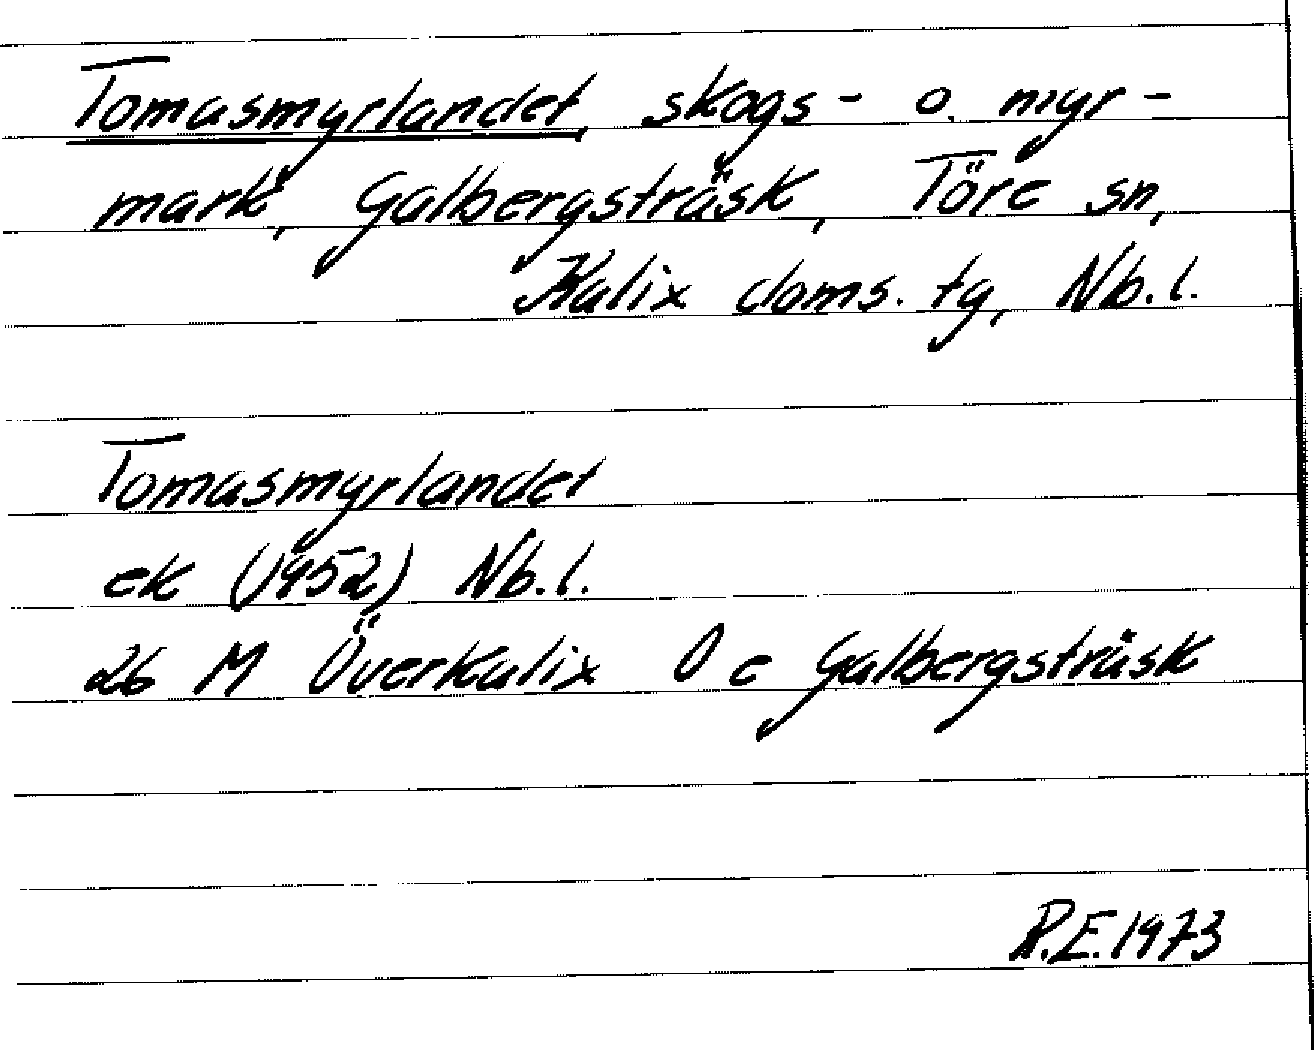 Tomasmyrlandet, skogs- o. myr-
mark, Galbergsträsk, Töre sn,
Kalix doms. tg, Nb.l.
Tomasmyrlandet
ek (1952) Nb.l.
26 M Överkalix O e Galbergsträsk
R.E. 1973